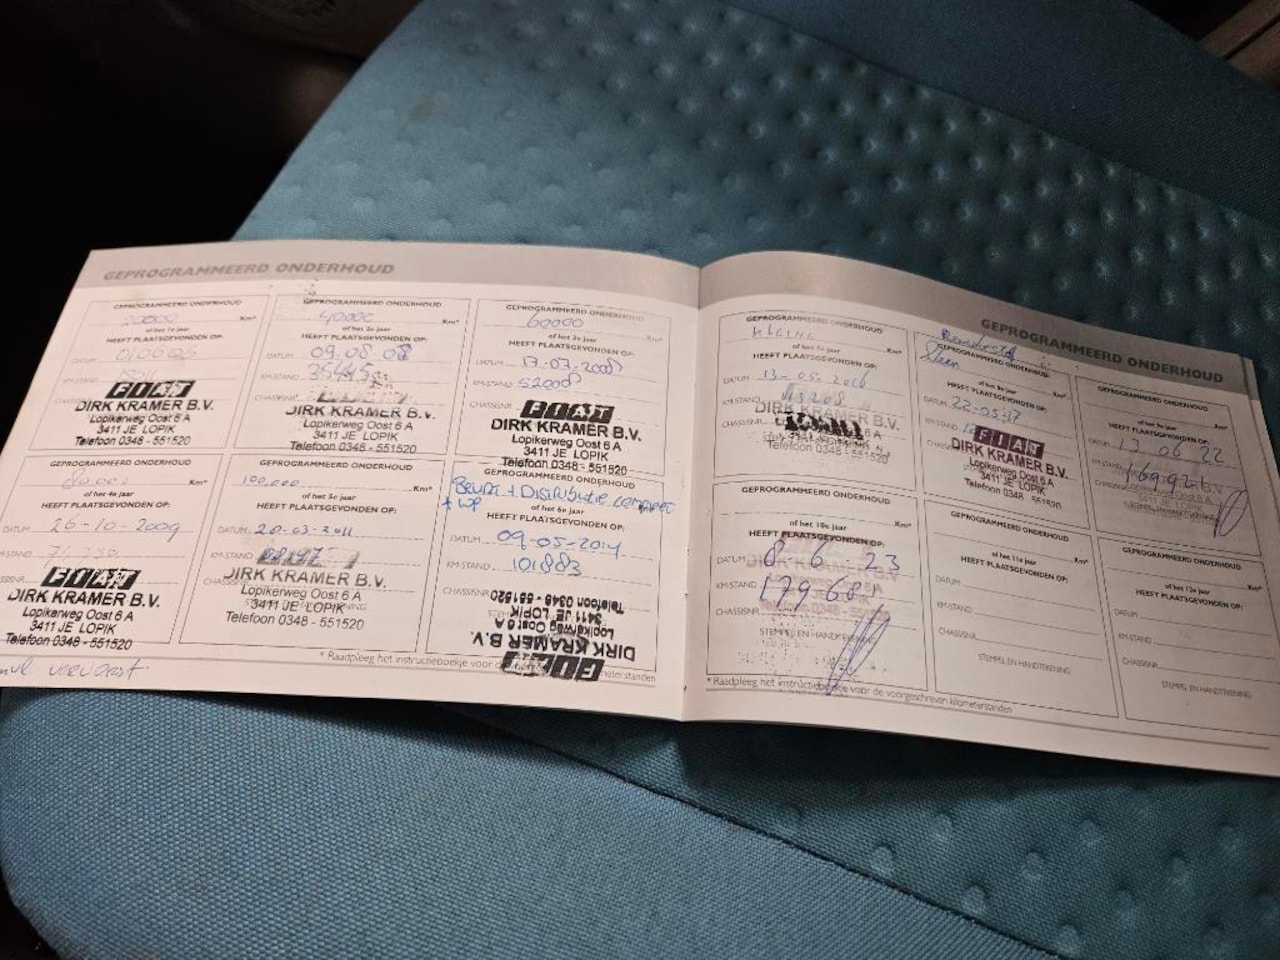 GEPROGRAMMEERD ONDERHOUD
GEPROGRAMMEERD ONDERHOUD
20000 Km*
of het 1e jaar
HEEFT PLAATSGEVONDEN OP:
DATUM
KM-STAND
FIAT
DIRK KRAMER B.V.
Lopikerweg Oost 6 A
3411 JE LOPIK
Telefoon 0348 - 551520
GEPROGRAMMEERD ONDERHOUD
40000 Km*
of het 2e jaar
HEEFT PLAATSGEVONDEN OP:
DATUM 09.08.08
KM-STAND 35445
CHASSISNR
DIRK KRAMER B.V.
Lopikerweg Oost 6 A
3411 JE LOPIK
Telefoon 0348 - 551520
GEPROGRAMMEERD ONDERHOUD
60000 Km*
of het 3e jaar
HEEFT PLAATSGEVONDEN OP:
DATUM
KM-STAND
CHASSISNR
FIAT
DIRK KRAMER B.V.
Lopikerweg Oost 6 A
3411 JE LOPIK
Telefoon 0348 - 551520
GEPROGRAMMEERD ONDERHOUD
Km*
of het 4e jaar
HEEFT PLAATSGEVONDEN OP:
DATUM 26-10-2009
KM-STAND
FIAT
DIRK KRAMER B.V.
Lopikerweg Oost 6 A
3411 JE LOPIK
Telefoon 0348 - 551520
GEPROGRAMMEERD ONDERHOUD
100,000 Km*
of het 5e jaar
HEEFT PLAATSGEVONDEN OP:
DATUM 28-03-2011
KM-STAND
DIRK KRAMER B.V.
Lopikerweg Oost 6 A
3411 JE LOPIK
Telefoon 0348 - 551520
GEPROGRAMMEERD ONDERHOUD
Beurt + Distributie compleet
+ WP
of het 6e jaar
HEEFT PLAATSGEVONDEN OP:
DATUM 09-05-2014
KM-STAND 101883
CHASSISNR
FIAT
DIRK KRAMER B.V.
Lopikerweg Oost 6 A
3411 JE LOPIK
Telefoon 0348 - 551520
* Raadpleeg het instructieboekje voor de
meterstanden
GEPROGRAMMEERD ONDERHOUD
GEPROGRAMMEERD ONDERHOUD
Km*
of het 7e jaar
HEEFT PLAATSGEVONDEN OP:
DATUM
KM-STAND
CHASSISNR
DIRK KRAMER B.V.
551520
GEPROGRAMMEERD ONDERHOUD
of het 8e jaar
HEEFT PLAATSGEVONDEN OP:
DATUM
KM-STAND
FIAT
DIRK KRAMER B.V.
Lopikerweg Oost 6 A
3411 JE LOPIK
Telefoon 0348 - 551520
GEPROGRAMMEERD ONDERHOUD
Km*
of het 9e jaar
HEEFT PLAATSGEVONDEN OP:
DATUM 17 06 22
KM-STAND
CHASSISNR
GEPROGRAMMEERD ONDERHOUD
Km*
of het 10e jaar
HEEFT PLAATSGEVONDEN OP:
DATUM 8 6 23
KM-STAND
CHASSISNR
STEMPEL EN HANDTEKENING
GEPROGRAMMEERD ONDERHOUD
Km*
of het 11e jaar
HEEFT PLAATSGEVONDEN OP:
DATUM
KM-STAND
CHASSISNR
STEMPEL EN HANDTEKENING
GEPROGRAMMEERD ONDERHOUD
Km*
of het 12e jaar
HEEFT PLAATSGEVONDEN OP:
DATUM
KM-STAND
CHASSISNR
STEMPEL EN HANDTEKENING
* Raadpleeg het instructieboekje voor de voorgeschreven kilometerstanden